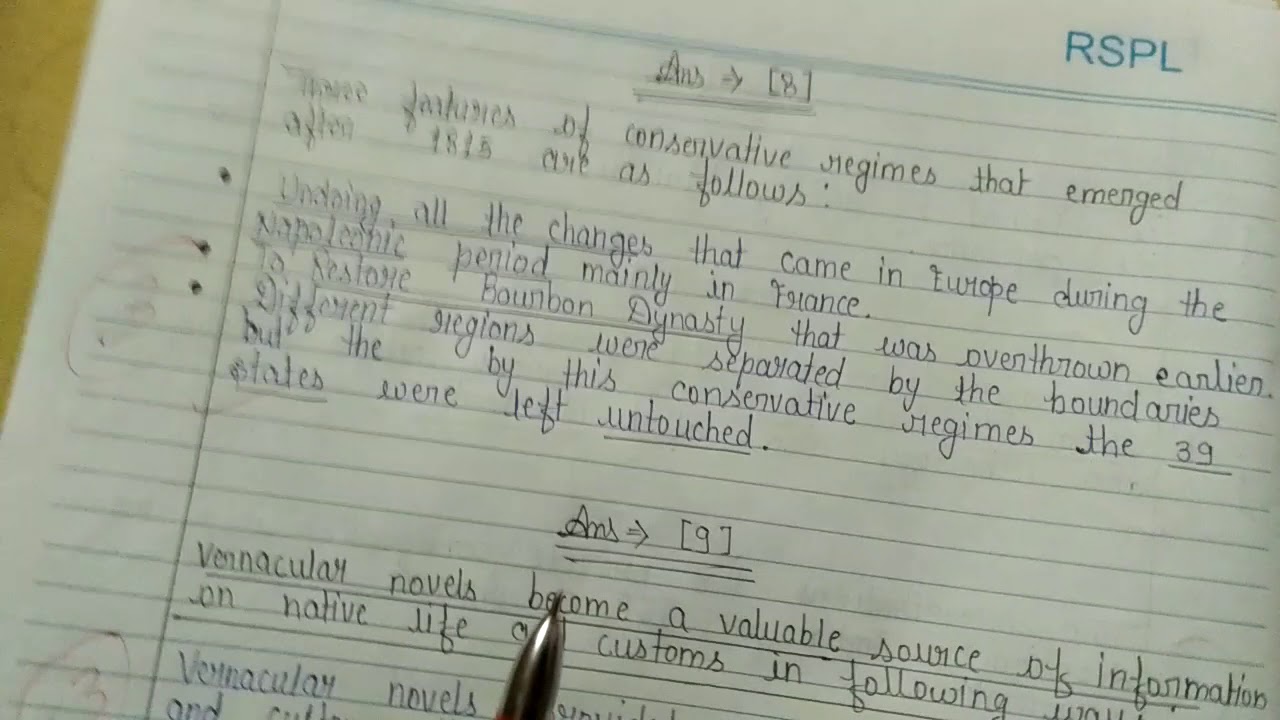 RSPL
Ans ⇒ [8]
Three features of conservative regimes that emerged
after 1815 are as follows:
• Undoing all the changes that came in Europe during the
Napoleonic period mainly in France.
• To Restore Bourbon Dynasty that was overthrown earlier.
• Different regions were separated by the boundaries
but the by this conservative regimes the 39
states were left untouched.
Ans ⇒ [9]
Vernacular novels become a valuable source of information
on native life customs in following
Vernacular novels
and